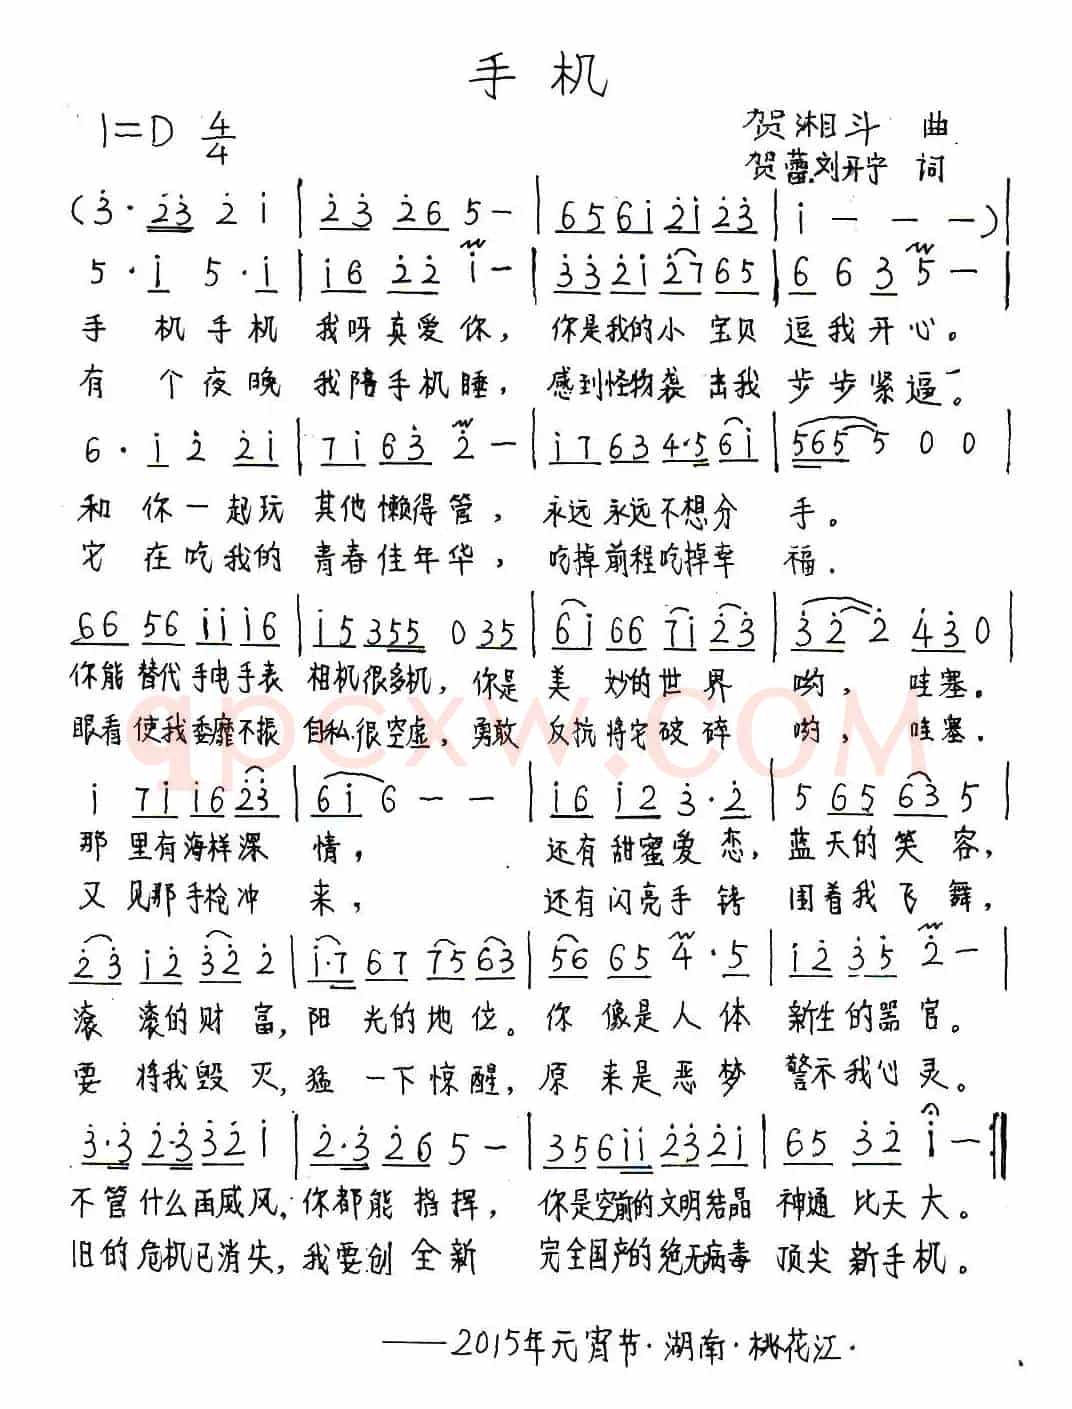 手机
1=D 4/4 贺湘斗 曲
贺蕾.刘开宇 词
(3· 23 2 1 | 23 26 5 - | 65 61 21 23 | 1 - - -) |
5·1 5·1 | 16 22 1 - | 33 21 27 65 | 6 6 3 5 - |
手机手机 我呀真爱你, 你是我的小宝贝 逗我开心。
有个夜晚 我陪手机睡, 感到怪物袭击我 步步紧逼。
6·1 2 21 | 71 63 2 - | 17 63 4·5 61 | 565 5 0 0 |
和你一起玩 其他懒得管, 永远永远不想分手。
它在吃我的 青春佳年华, 吃掉前程吃掉幸福.
66 56 11 16 | 15 355 0 35 | 61 66 71 23 | 32 2 43 0 |
你能替代手电手表 相机很多机, 你是美妙的世界 哟, 哇塞.
眼看使我萎靡不振 自私很空虚, 勇敢反抗将它破碎 哟, 哇塞.
1 71 16 23 | 61 6 - - | 16 12 3·2 | 5 65 63 5 |
那里有海样深情, 还有甜蜜爱恋, 蓝天的笑容,
又见那手枪冲来, 还有闪亮手铐 围着我飞舞,
23 12 32 2 | 1·7 67 75 63 | 56 65 4·5 | 12 35 2 - |
滚滚的财富, 阳光的地位。你像是人体 新生的器官。
要将我毁灭, 猛一下惊醒, 原来是恶梦 警示我心灵。
3·3 2·3 32 1 | 2·3 26 5 - | 35 611 23 21 | 65 32 1 - :‖
不管什么再威风, 你都能指挥, 你是空前的文明结晶 神通比天大。
旧的危机已消失, 我要创全新 完全国产的绝无病毒 顶尖新手机。
——2015年元宵节·湖南·桃花江.
qpcxw.com